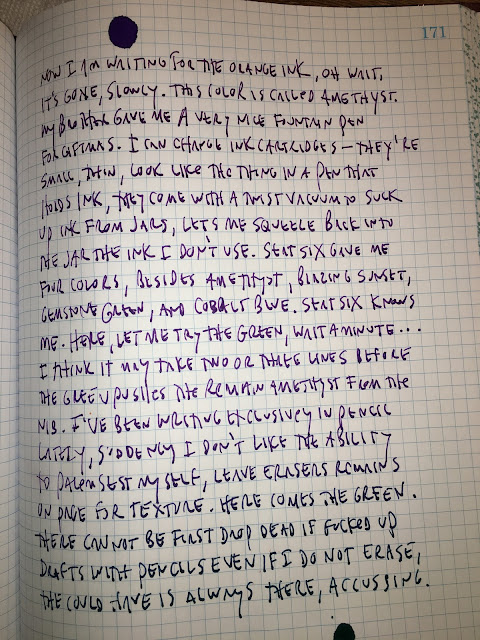 171
NOW I AM WAITING FOR THE ORANGE INK, OH WAIT,
IT'S GONE, SLOWLY. THIS COLOR IS CALLED AMETHYST.
MY BROTHER GAVE ME A VERY NICE FOUNTAIN PEN
FOR GIFTMAS. I CAN CHANGE INK CARTRIDGES - THEY'RE
SMALL, THIN, LOOK LIKE THE THING IN A PEN THAT
HOLDS INK, THEY COME WITH A TWIST VACUUM TO SUCK
UP INK FROM JARS, LETS ME SQUEEZE BACK INTO
THE JAR THE INK I DON'T USE. SEAT SIX GAVE ME
FOUR COLORS, BESIDES AMETHYST, BLAZING SUNSET,
GEMSTONE GREEN, AND COBALT BLUE. SEAT SIX KNOWS
ME. HERE, LET ME TRY THE GREEN, WAIT A MINUTE...
I THINK IT MAY TAKE TWO OR THREE LINES BEFORE
THE GREEN PUSHES THE REMAIN AMETHYST FROM THE
NIB. I'VE BEEN WRITING EXCLUSIVEY IN PENCIL
LATELY, SUDDENLY I DON'T LIKE THE ABILITY
TO PALEMSEST MYSELF, LEAVE ERASERS REMAINS
ON PAGE FOR TEXTURE. HERE COMES THE GREEN.
THERE CAN NOT BE FIRST DROP DEAD IF FUCKED UP
DRAFTS WITH PENCILS EVEN IF I DO NOT ERASE,
THE COULD HAVE IS ALWAYS THERE, ACCUSSING.